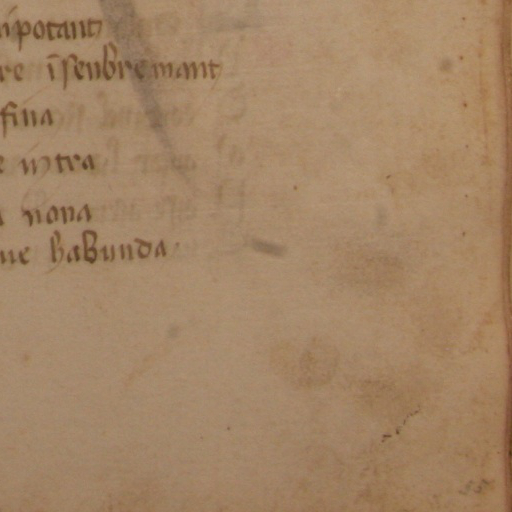 ipotant
re īsenbre mant
fina
e intra
a nona
ue habunda